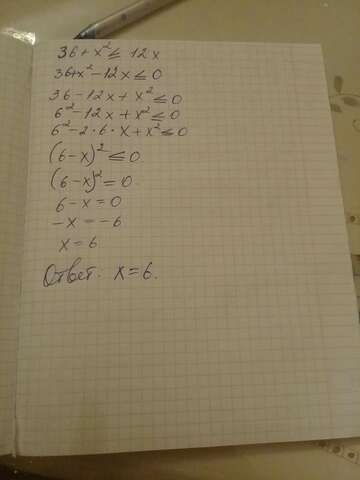 36+x²≤ 12x
36+x²-12x≤0
36-12x+x²≤0
6²-12x+x²≤0
6²-2·6·x+x²≤0
(6-x)²≤0
(6-x)²=0
6-x=0
-x=-6
x=6
Ответ: x=6.